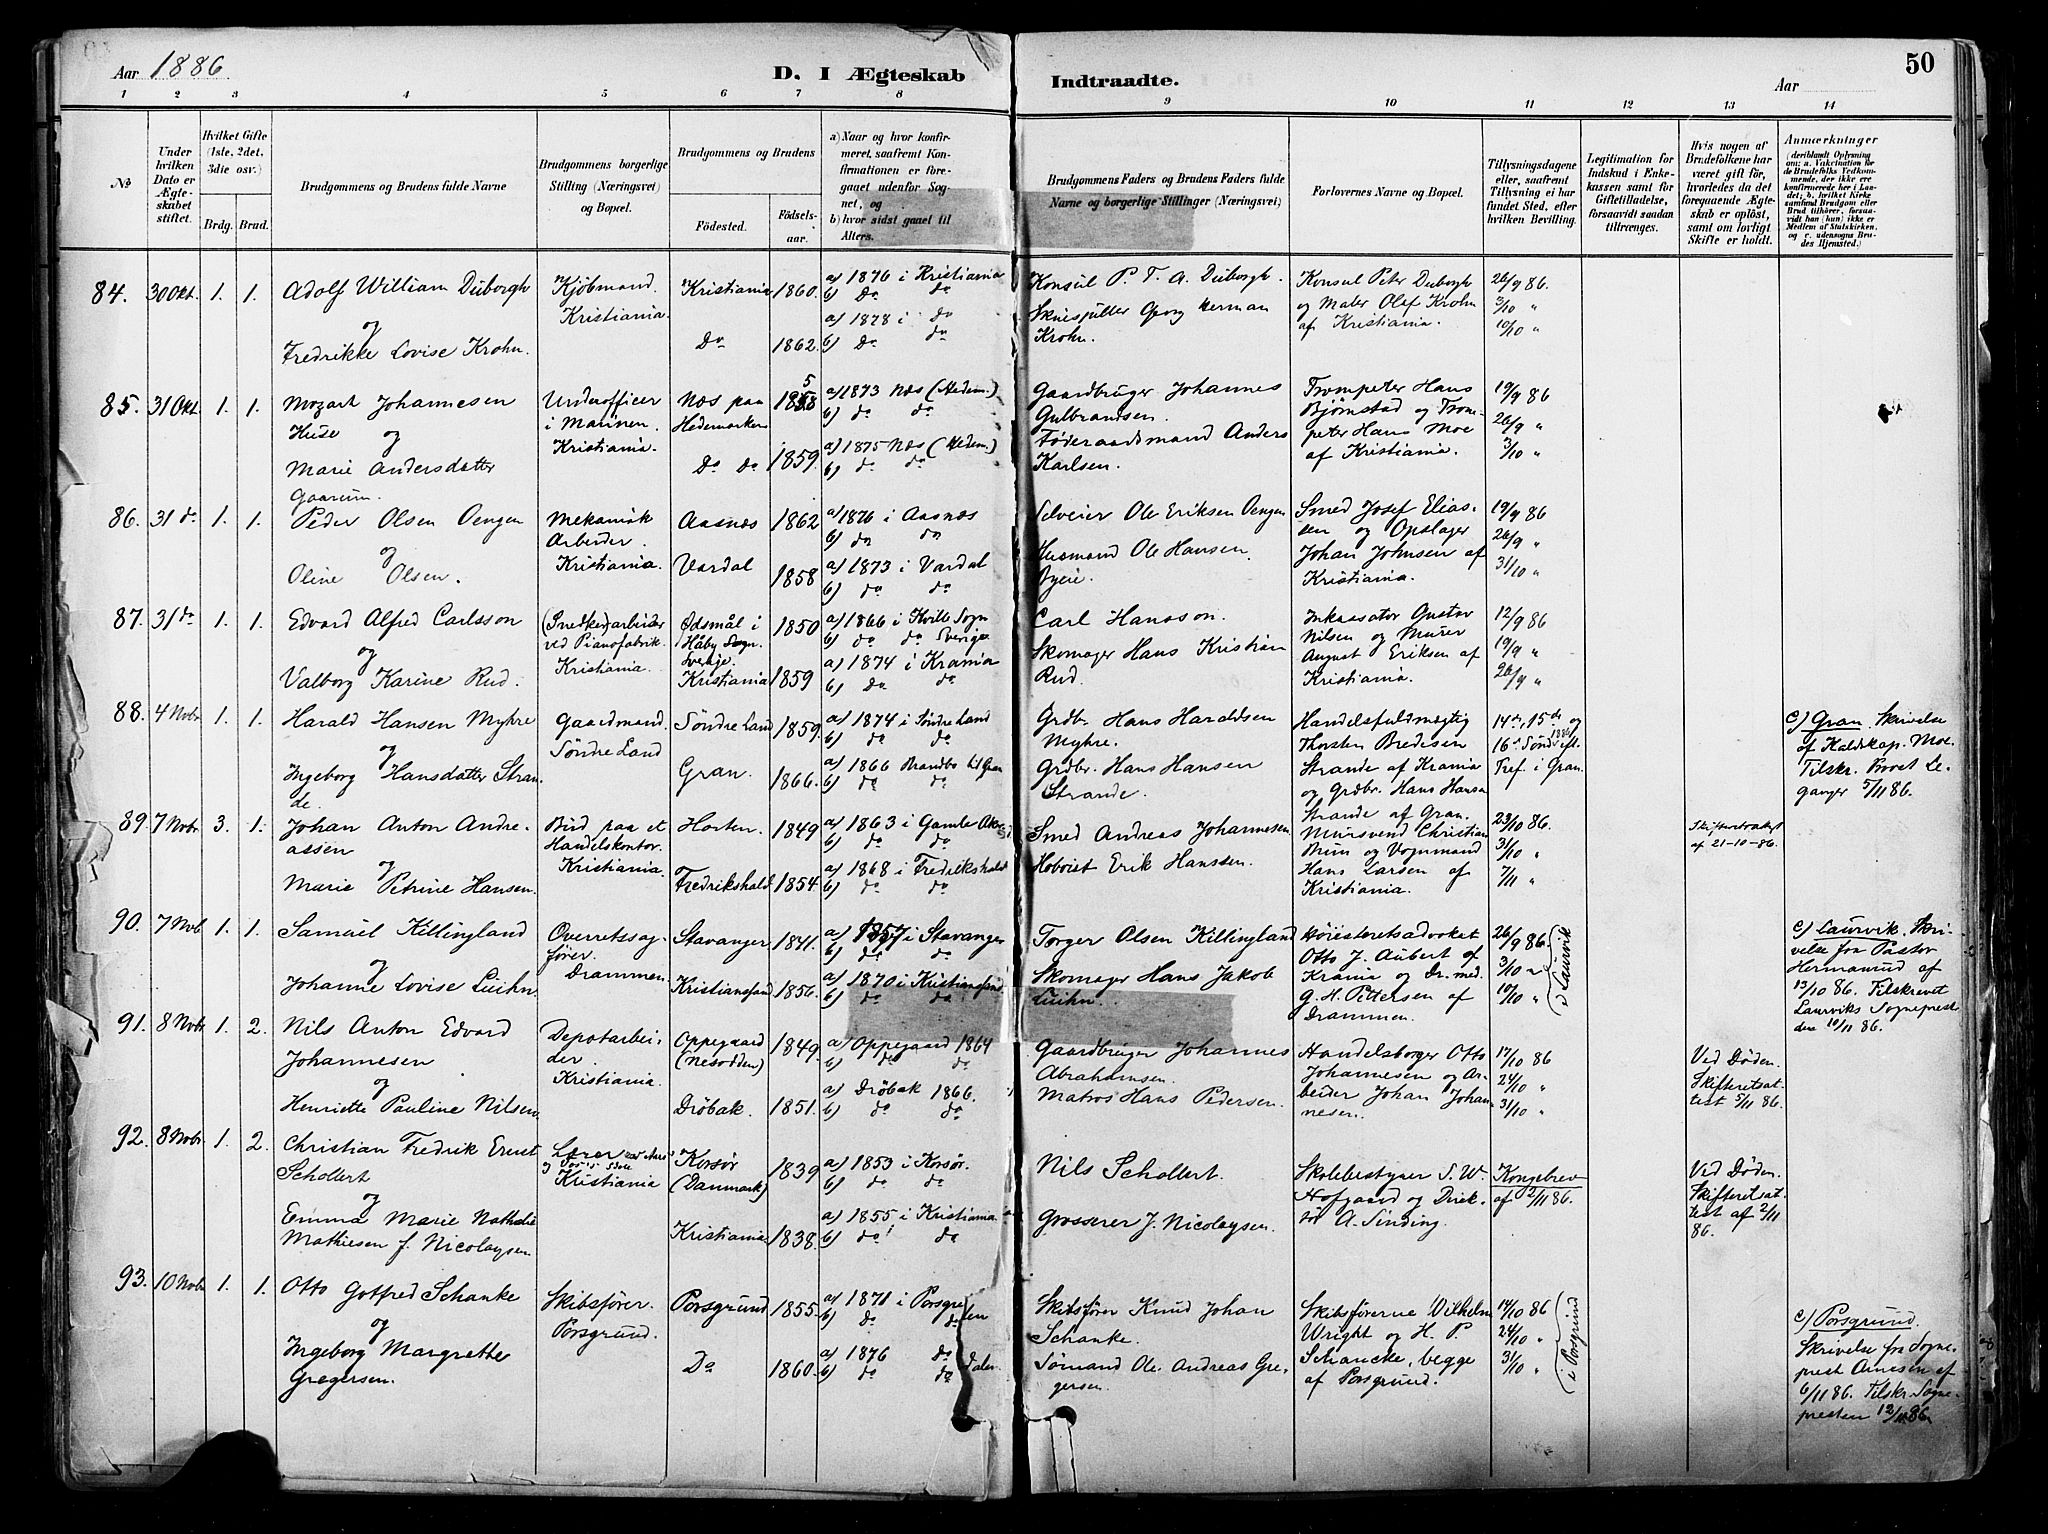 50
Aar 1886
D. I Ægteskab
Indtraadte.
Aar
1 2 3 4 5 6 7 8 9 10 11 12 13 14
No
Under hvilken Dato er Ægteskabet stiftet.
Hvilket Gifte (1ste, 2det, 3die osv.)
Brdg. Brud.
Brudgommens og Brudens fulde Navne
Brudgommens borgerlige Stilling (Næringsvei) og Bopæl.
Brudgommens og Brudens
Födested.
Födselsaar.
a) Naar og hvor konfirmeret, saafremt Konfirmationen er foregaaet udenför Sognet, og
b) hvor sidst gaaet til Alters.
Brudgommens Faders og Brudens Faders fulde Navne og borgerlige Stillinger (Næringsvei)
Forlovernes Navne og Bopæl.
Tillysningsdagene eller, saafremt Tillysning ei har fundet Sted, efter hvilken Bevilling.
Legitimation for Indskud i Enkekassen samt for Giftetilladelse, forsaavidt saadan tiltrænges.
Hvis nogen af Brudefolkene har været gift för, hvorledes da det foregaaende Ægteskab er oplöst, samt om lovligt Skifte er holdt.
Anmærkninger
(deriblandt Oplysning om: a. Vakcination för de Brudefolks Vedkommende, der ikke ere konfirmerede her i Landet, b. hvilket Kirkesamfund Brudgom eller Brud tilhörer, forsaavidt han (hun) ikke er Medlem af Statskirken, og c. udensogns Brudes Hjemsted.)
84. 30 Okt. 1. 1. Adolf William Duborgh Kjöbmand. Kristiania 1860. a) 1876 i Kristiania Konsul P. T. A. Duborgh. Konsul Peter Duborgh 26/9 86.
b) Do do og Maler Olaf Krohn 3/10 "
og Kristiania. a) 1878 i do Skuespiller Georg Herman af Kristiania. 10/10 "
Fredrikke Lovise Krohn. Do 1862. b) Do do Krohn.
85. 31 Okt. 1. 1. Mozart Johannesen Underofficer Næs paa 1855 a) 1873 Næs (Hedem.) Gaardbruger Johannes Trompeter Hans 19/9 86
Huse og i Marinen. Hedemarken b) do do Gulbrandsen. Bjørnstad og Trom- 26/9 "
Marie Andersdatter Kristiania. Do Do 1859. a) 1875 Næs (Hedem.) Föderaadsmand Anders peter Hans Moe 3/10 "
Gaarum. b) do do Karlsen. af Kristiania.
86. 31 do 1. 1. Peder Olsen Oengen Mekanisk Aasnæs 1862 a) 1876 i Aasnæs Selveier Ole Eriksen Oengen Smed Josef Elias- 19/9 86
og Arbeider. b) do do sen og Opslager 26/9 "
Oline Olsen. Kristiania. Vardal 1858 a) 1873 i Vardal Husmand Ole Hansen Johan Johnsen af 31/10 "
b) do do Kristiania.
87. 31 do 1. 1. Edvard Alfred Carlsson (Snedker) arbeider Ödsmål i 1850 a) 1866 i Kville Sogn Carl Hansson. Inkassator Gustav 12/9 86
og ved Pianofabrik. Håby Sogn. b) do do Sverige Nilsen og Murer 19/9 "
Valborg Karine Rud. Kristiania. Sverige. a) 1874 i Krania Skomager Hans Kristian August Eriksen af 26/9 "
Kristiania 1859 b) Do do Rud. Kristiania.
88. 4 Nvbr. 1. 1. Harald Hansen Myhre Gaardmand. Söndre Land 1859. a) 1874 i Söndre Land Grdbr. Hans Haraldsen Handelsfuldmægtig 14de, 15de og c) Gran. Skrivelse
og Söndre Land b) do do Myhre. Thorsten Bredesen 16de Sönd. 1886 af Kaldskap. Moe.
Ingeborg Hansdatter Stran- Gran. 1866. a) 1866 Brandbo til Gran Grdbr. Hans Hansen Strande af Krania Tref. i Gran. Tilskr. Provst Le-
de. b) do do Strande. og Grdbr. Hans Hansen ganger 5/11 86.
Strande af Gran.
89. 7 Nvbr. 3. 1. Johan Anton Andre- Bud paa et Horten. 1849 a) 1863 i Gamle Aker Smed Andreas Johannesen Mursvend Christian 23/10 86. Skifteattest
assen Handelskontor. b) do do og Vognmand 3/10 " af 21-10-86.
og Kristiania. a) 1868 i Fredrikshald Hoboist Erik Hanssen. Hans Larsen af 7/11 "
Marie Petrine Hansen. Fredrikshald 1854. b) do do Kristiania.
90. 7 Nvb. 1. 1. Samuel Killingland Overretssag- Stavanger 1841. a) 1857 i Stavanger Torger Olsen Killingland Höiesteretsadvokat 26/9 86. i Laurvik c) Laurvik. Skri-
og förer. b) do do Otto J. Aubert af 3/10 " velse fra Pastor
Johanne Lovise Luihn. Drammen. Kristiansand 1856. a) 1870 i Kristianssand Skomager Hans Jakob Krania og Dr. med. 10/10 " Hermanrud af
b) do do Luihn. G. H. Pettersen af 13/10 86. Tilskrevet
Drammen. Laurviks Sogneprest
den 10/11 86.
91. 8 Nvbr. 1. 2. Nils Anton Edvard Depotarbei- Oppegaard 1849. a) Oppegaard 1864 Gaardbruger Johannes Handelsborger Otto 17/10 86 Ved Döden.
Johannesen der. (Nesodden) b) do do Abrahamsen. Johannesen og Ar- 24/10 " Skifteretsat-
og Kristiania. a) Dröbak 1866. Matros Hans Pedersen. beider Johan Johan- 31/10 " test 5/11 86.
Henriette Pauline Nilsen. Dröbak. 1851. b) do do nesen.
92. 8 Nvbr. 1. 2. Christian Fredrik Ernst Lærer ved Aars' Korsör 1839 a) 1853 i Korsör. Nils Schollert. Skolebestyrer S. W. Kongebrev Ved Döden.
Schollert og Voss's Skole (Danmark) b) do do Hofgaard og Direk- af 2/11 86. Skifteretsat-
og Kristiania a) 1855 i Kristiania. Grosserer J. Nicolaysen. tör A. Sinding. test af 2/11
Emma Marie Nathalie Kristiania 1838. b) do do 86.
Mathiesen f. Nicolaysen
93. 10 Nvbr. 1. 1. Otto Gotfred Schanke Skibsförer. Porsgrund 1855. a) 1871 i Porsgrunden Skibsförer Knud Johan Skibsförerne Wilhelm 17/10 86 i Porsgrund c) Porsgrund.
og Porsgrund. b) do do Schanke. Wright og H. P. 24/10 " Skrivelse fra Sogne-
Ingeborg Margrethe Do 1860. a) 1876 do Sömand Ole Andreas Gre- Schancke, begge 31/10 " prest Arnesen af
Gregersen. b) do do gersen. af Porsgrund. 6/11 86. Tilskr. Sogne-
presten 12/11 86.